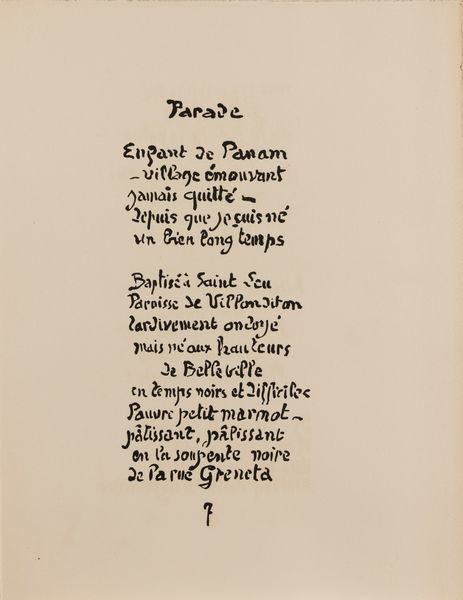 Parade
Enfant de Panam
– village émouvant
jamais quitté –
depuis que je suis né
un bien long temps
Baptisé à Saint Leu
Paroisse de Villonditan
tardivement ondoyé
mais né aux hauteurs
de Belleville
en temps noirs et difficiles
Pauvre petit marmot –
pâtissant, pâlissant
en la soupente noire
de la rue Greneta
7